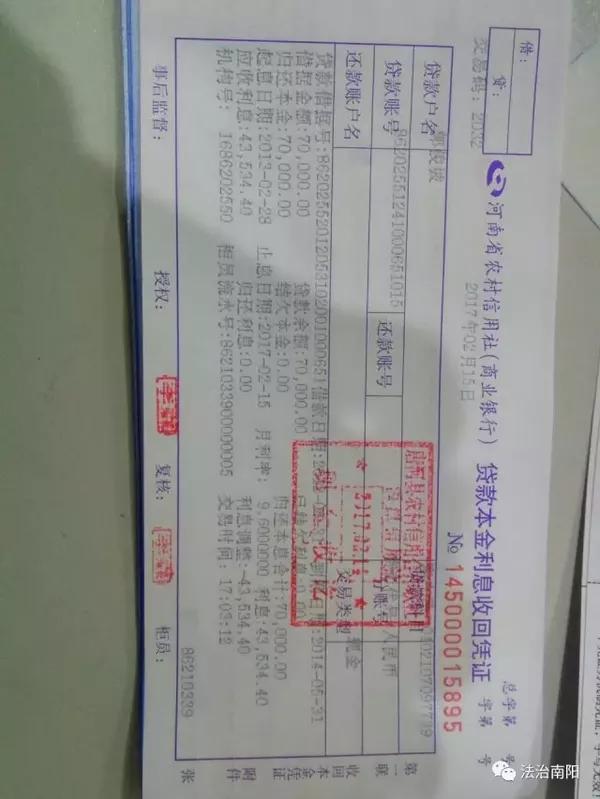 借：
贷：
交易码：2032
河南省农村信用社(商业银行) 贷款本金利息收回凭证
2017年02月15日
№ 145000015895
总字第 号
字第 号
贷款户名
贷款账号 86202551241000651015
还款账号
还款账户名
人民币
交易类型 现金
贷款借据号:86202552012053102001000651 借款日期: 到期日期:2014-05-31
借据金额:70,000.00 贷款余额:70,000.00
归还本金:70,000.00 结欠本金:0.00 归还本息合计:70,000.00
起息日期:2013-02-28 止息日期:2017-02-15 月利率: 9.6000000 利息:43,534.40
应收利息:43,534.40 归还利息:0.00 利息调整:-43,534.40
机构号: 1686202550 柜员流水号:8621033900000005 交易时间: 17:03:12
2017.02.15
事后监督：
授权：
复核：
柜员：
86210339
第一联
收回本金凭证
附件
张
法治南阳